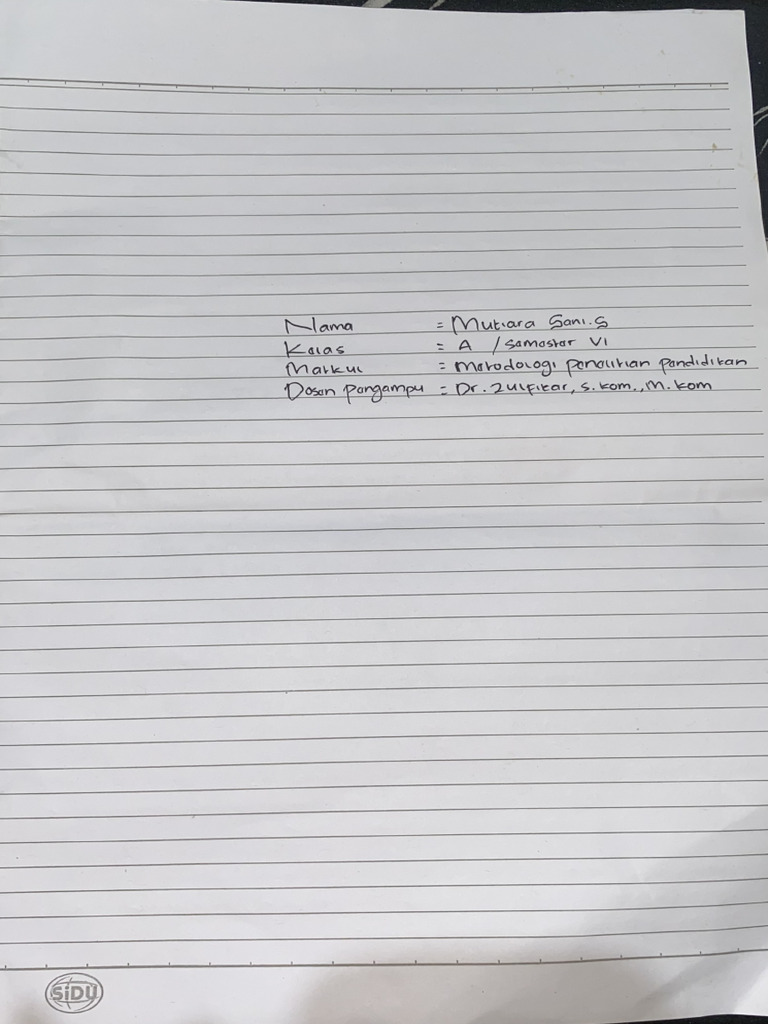 Nama = Mutiara Sani.S
Kelas = A / Semester VI
Matkul = Metodologi penelitian pendidikan
Dosen pengampu = Dr. Zulfikar, S.kom., M.kom
SiDU